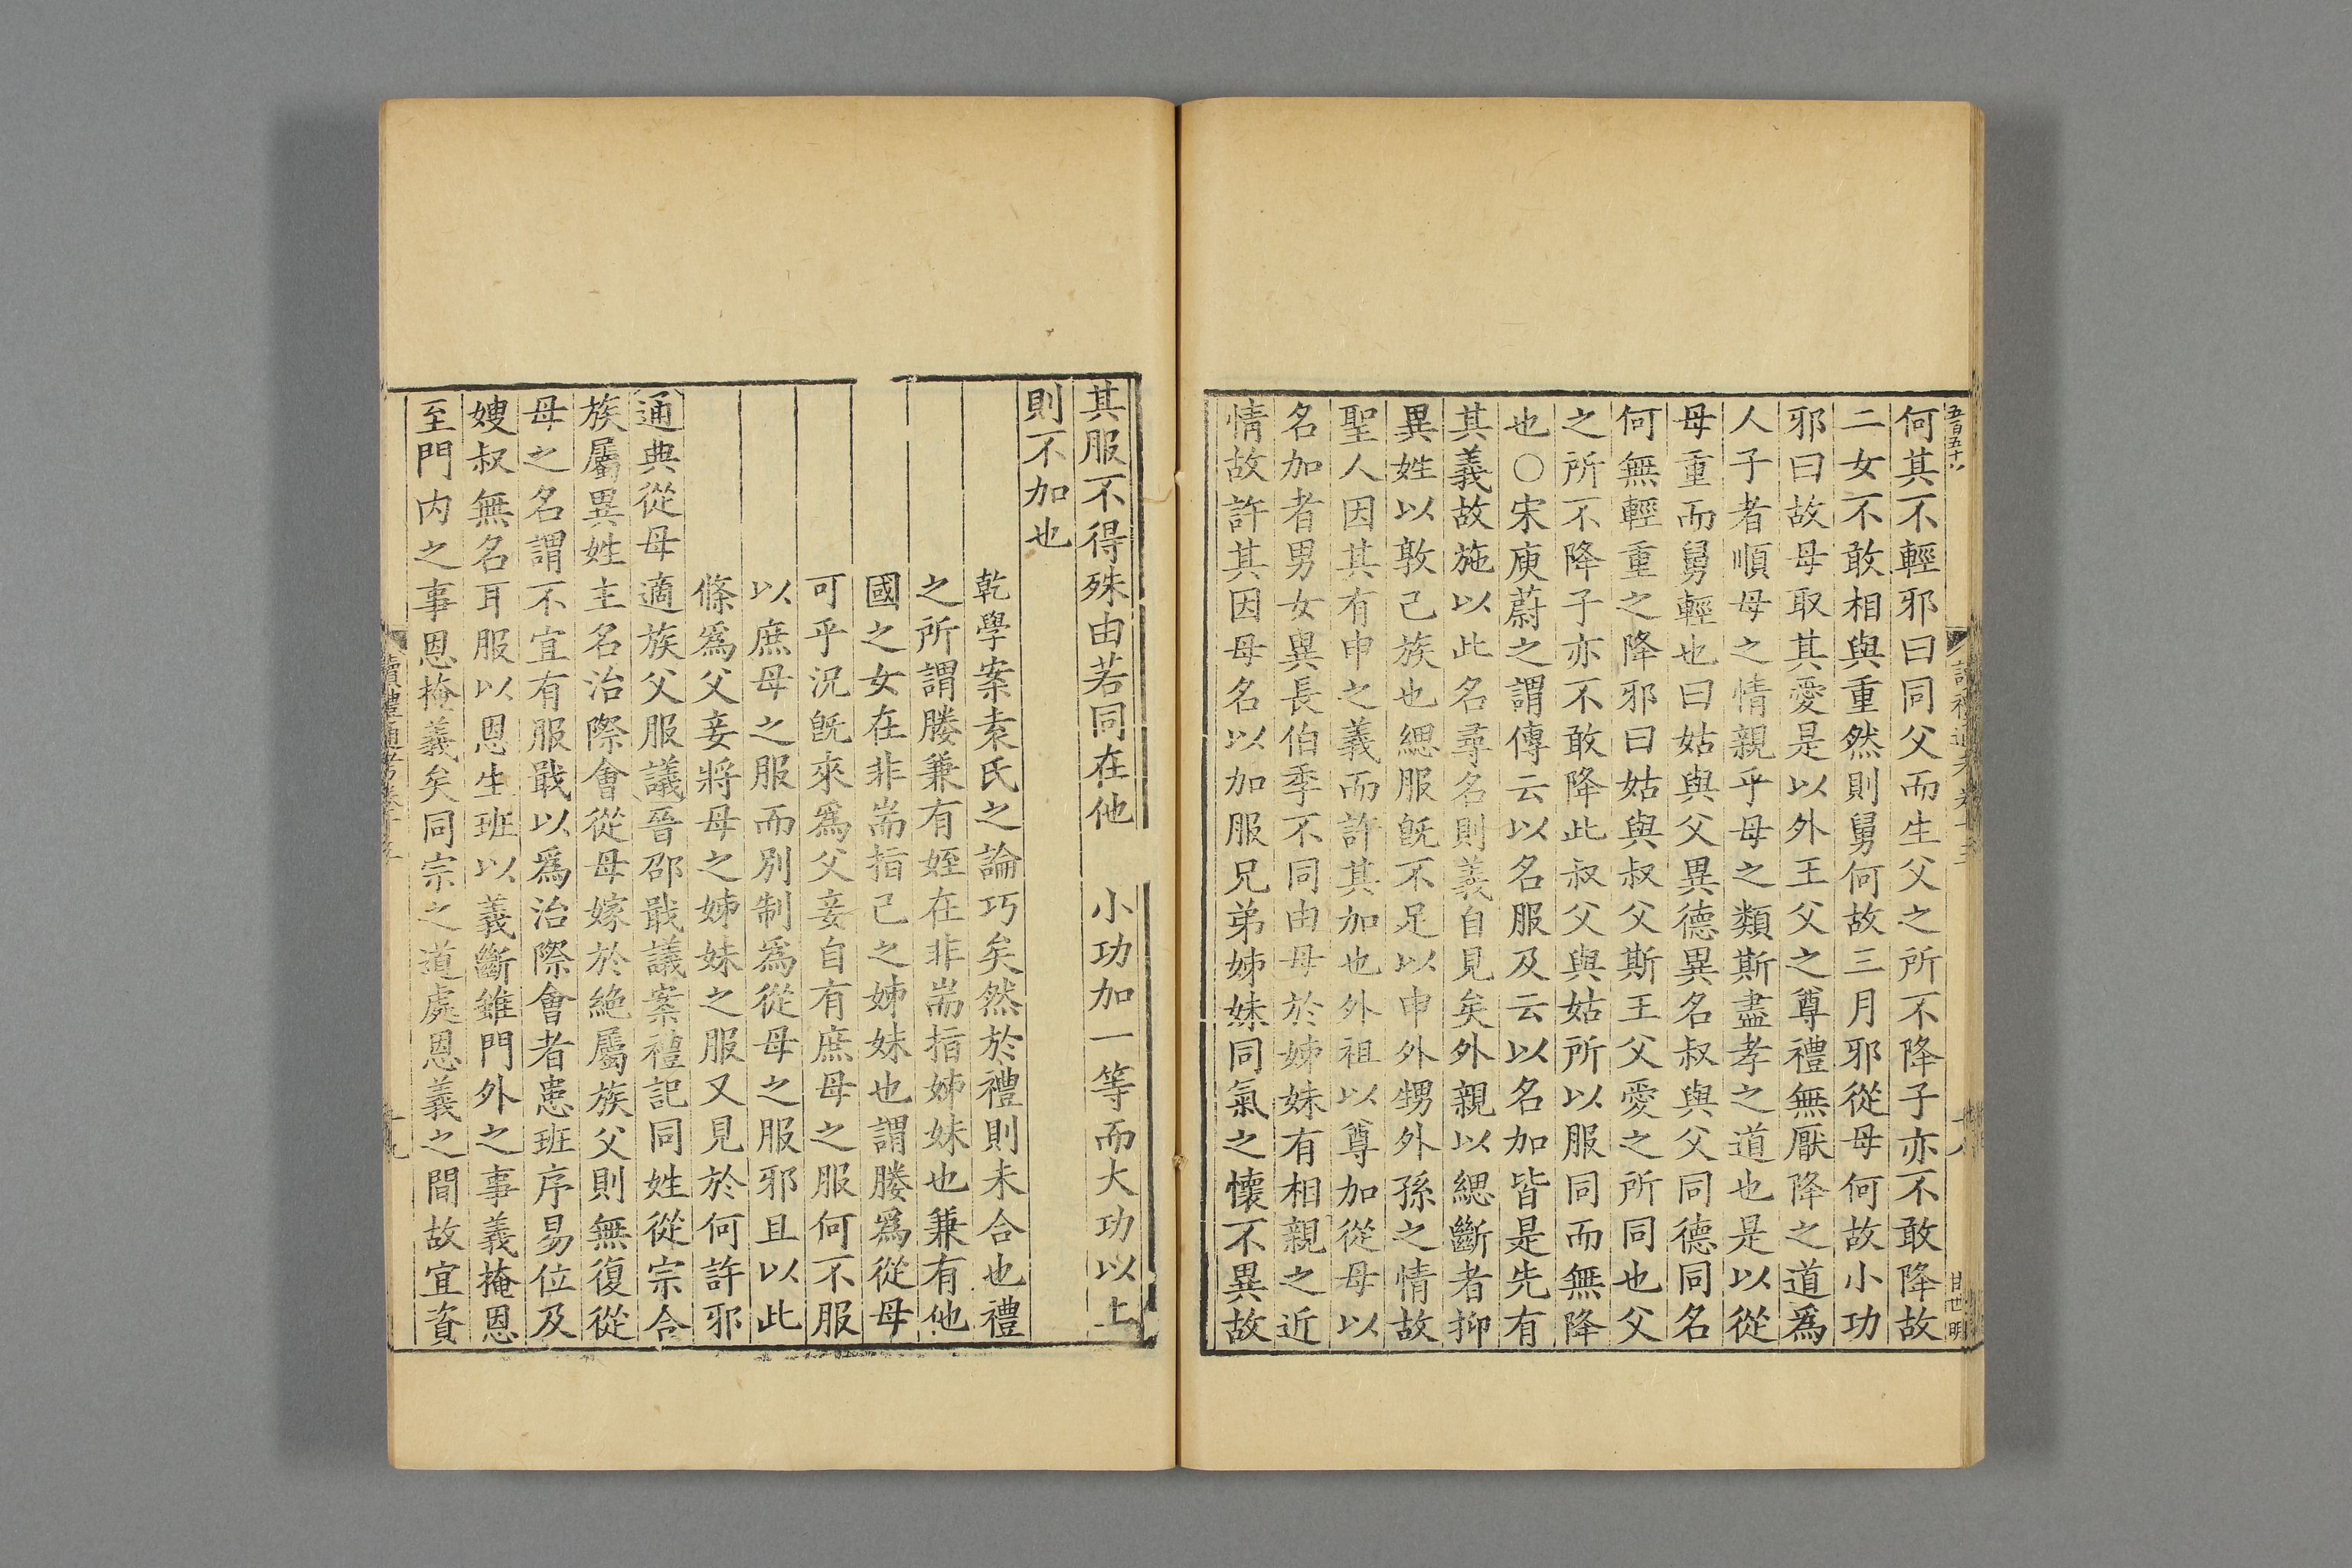 何其不輕邪曰同父而生父之所不降子亦不敢降故
二女不敢相與重然則舅何故三月邪從母何故小功
邪曰故母取其愛是以外王父之尊禮無厭降之道爲
人子者順母之情親乎母之類斯盡孝之道也是以從
母重而舅輕也曰姑與父異德異名叔與父同德同名
何無輕重之降邪曰姑與叔父斯王父愛之所同也父
之所不降子亦不敢降此叔父與姑所以服同而無降
也○宋庾蔚之謂傳云以名服及云以名加皆是先有
其義故施以此名尋名則義自見矣外親以緦斷者抑
異姓以敦己族也緦服旣不足以申外甥外孫之情故
聖人因其有申之義而許其加也外祖以尊加從母以
名加者男女異長伯季不同由母於姊妹有相親之近
情故許其因母名以加服兄弟姊妹同氣之懷不異故
甘世明
其服不得殊由若同在他 小功加一等而大功以上
則不加也
乾學案袁氏之論巧矣然於禮則未合也禮
之所謂媵兼有姪在非耑指姊妹也兼有他
國之女在非耑指己之姊妹也謂媵爲從母
可乎況旣來爲父妾自有庶母之服何不服
以庶母之服而別制爲從母之服邪且以此
條爲父妾將母之姊妹之服又見於何許邪
通典從母適族父服議晉邵戢議案禮記同姓從宗合
族屬異姓主名治際會從母嫁於絶屬族父則無復從
母之名謂不宜有服戢以爲治際會者患班序易位及
嫂叔無名耳服以恩生班以義斷雖門外之事義掩恩
至門内之事恩掩義矣同宗之道處恩義之間故宜資